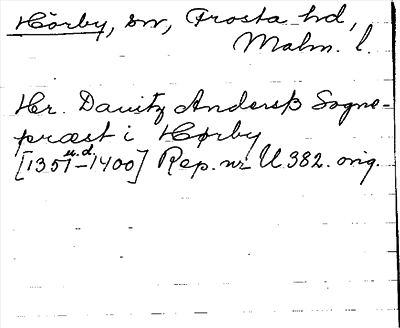 Hörby, sn, Frosta hd,
Malm. l.
Hr. Dauitz Andersß Sogne-
præst i Hørby
u.d.
[1351-1400] Rep. nr U 382. orig.